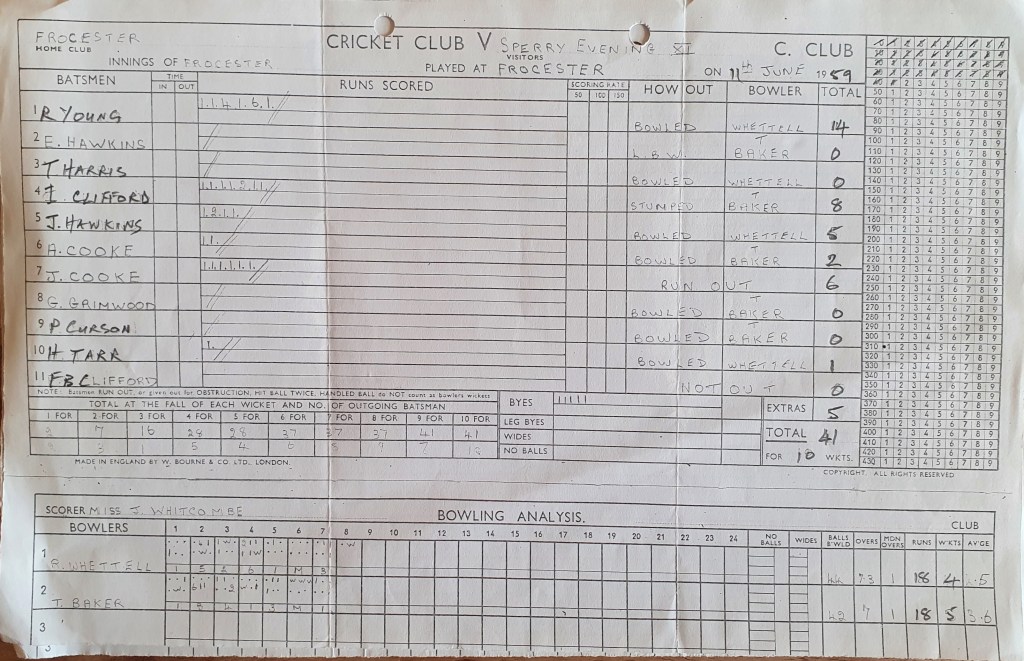 FROCESTER CRICKET CLUB V SPERRY EVENING XI C. CLUB
HOME CLUB VISITORS
INNINGS OF FROCESTER PLAYED AT FROCESTER ON 11th JUNE 1959
BATSMEN TIME IN OUT RUNS SCORED SCORING RATE 50 100 150 HOW OUT BOWLER TOTAL
1 R YOUNG 1.1.4.6.1. BOWLED WHETTELL 14
2 E. HAWKINS L.B.W. T BAKER 0
3 T HARRIS BOWLED WHETTELL 0
4 I. CLIFFORD STUMPED T BAKER 8
5 J. HAWKINS 1.2.1.1. BOWLED WHETTELL 5
6 A. COOKE 1.1. BOWLED T BAKER 2
7 J. COOKE 1.1.1.1.1.1. RUN OUT 6
8 G. GRIMWOOD BOWLED T BAKER 0
9 P CURSON BOWLED T BAKER 0
10 H. TARR 1. BOWLED WHETTELL 1
11 F B CLIFFORD NOT OUT 0
NOTE: Batsmen RUN OUT, or given out for OBSTRUCTION, HIT BALL TWICE, HANDLED BALL do NOT count as bowlers wickets
TOTAL AT THE FALL OF EACH WICKET AND NO. OF OUTGOING BATSMAN
1 FOR 2 FOR 3 FOR 4 FOR 5 FOR 6 FOR 7 FOR 8 FOR 9 FOR 10 FOR
7 16 28 28 37 37 37 41 41
BYES 11111
LEG BYES
WIDES
NO BALLS
EXTRAS 5
TOTAL 41
FOR 10 WKTS.
MADE IN ENGLAND BY W. BOURNE & CO LTD., LONDON.
COPYRIGHT. ALL RIGHTS RESERVED
SCORER MISS J. WHITCOMBE BOWLING ANALYSIS. CLUB
BOWLERS 1 2 3 4 5 6 7 8 9 10 11 12 13 14 15 16 17 18 19 20 21 22 23 24 NO BALLS WIDES BALLS B'WLD OVERS MDN OVERS RUNS W'KTS AV'GE
1 WHETTELL 1 5 5 6 1 M 3 44 7.3 1 18 4 4.5
2 T. BAKER 42 7 1 18 5 3.6
3